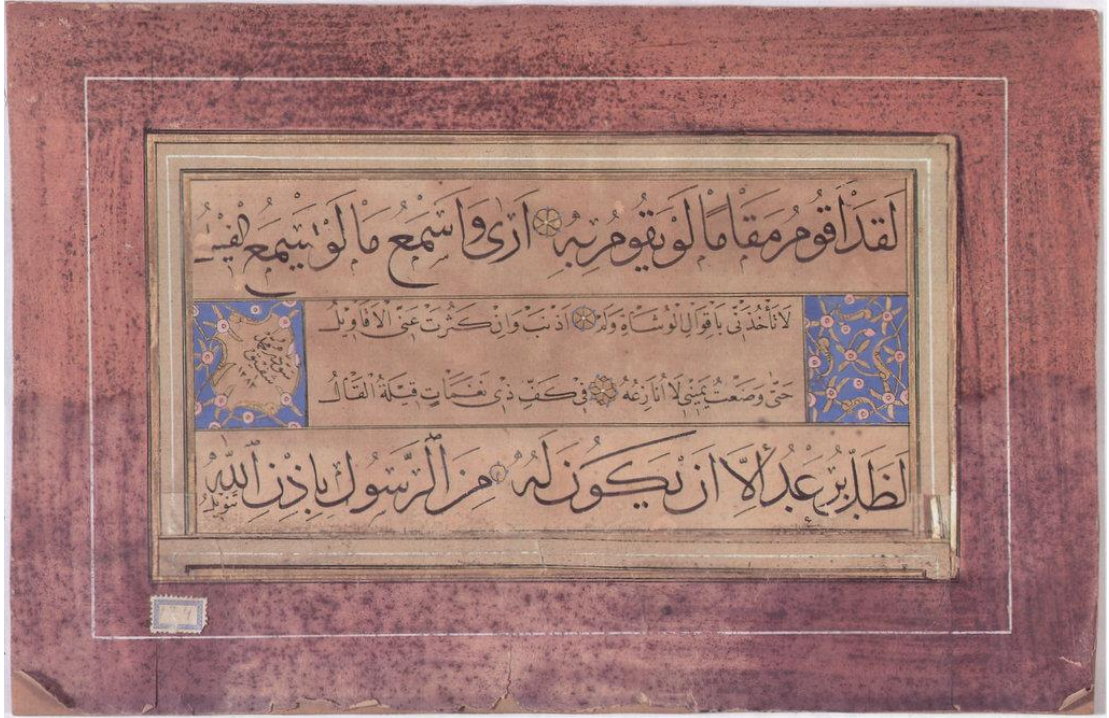 لَقَدْ اَقُومُ مَقَامًا لَوْ يَقُومُ بِهِ اَرٰى وَاَسْمَعُ مَا لَوْ يَسْمَعُ الْفِيلُ
لَا تَأْخُذَنِّى بِاَقْوَالِ الْوُشَاةِ وَلَمْ اُذْنِبْ وَاِنْ كَثُرَتْ عَنِّى الْاَقَاوِيلُ
حَتّٰى وَضَعْتُ يَمِينِى لَا اُنَازِعُهُ فِى كَفِّ ذِى نَغَمَاتٍ الْقَالُ
لَظَلَّ يُرْعَدُ اِلَّا اَنْ يَكُونَ لَهُ مِنَ الرَّسُولِ بِاِذْنِ اللّٰهِ تَنْوِيلُ